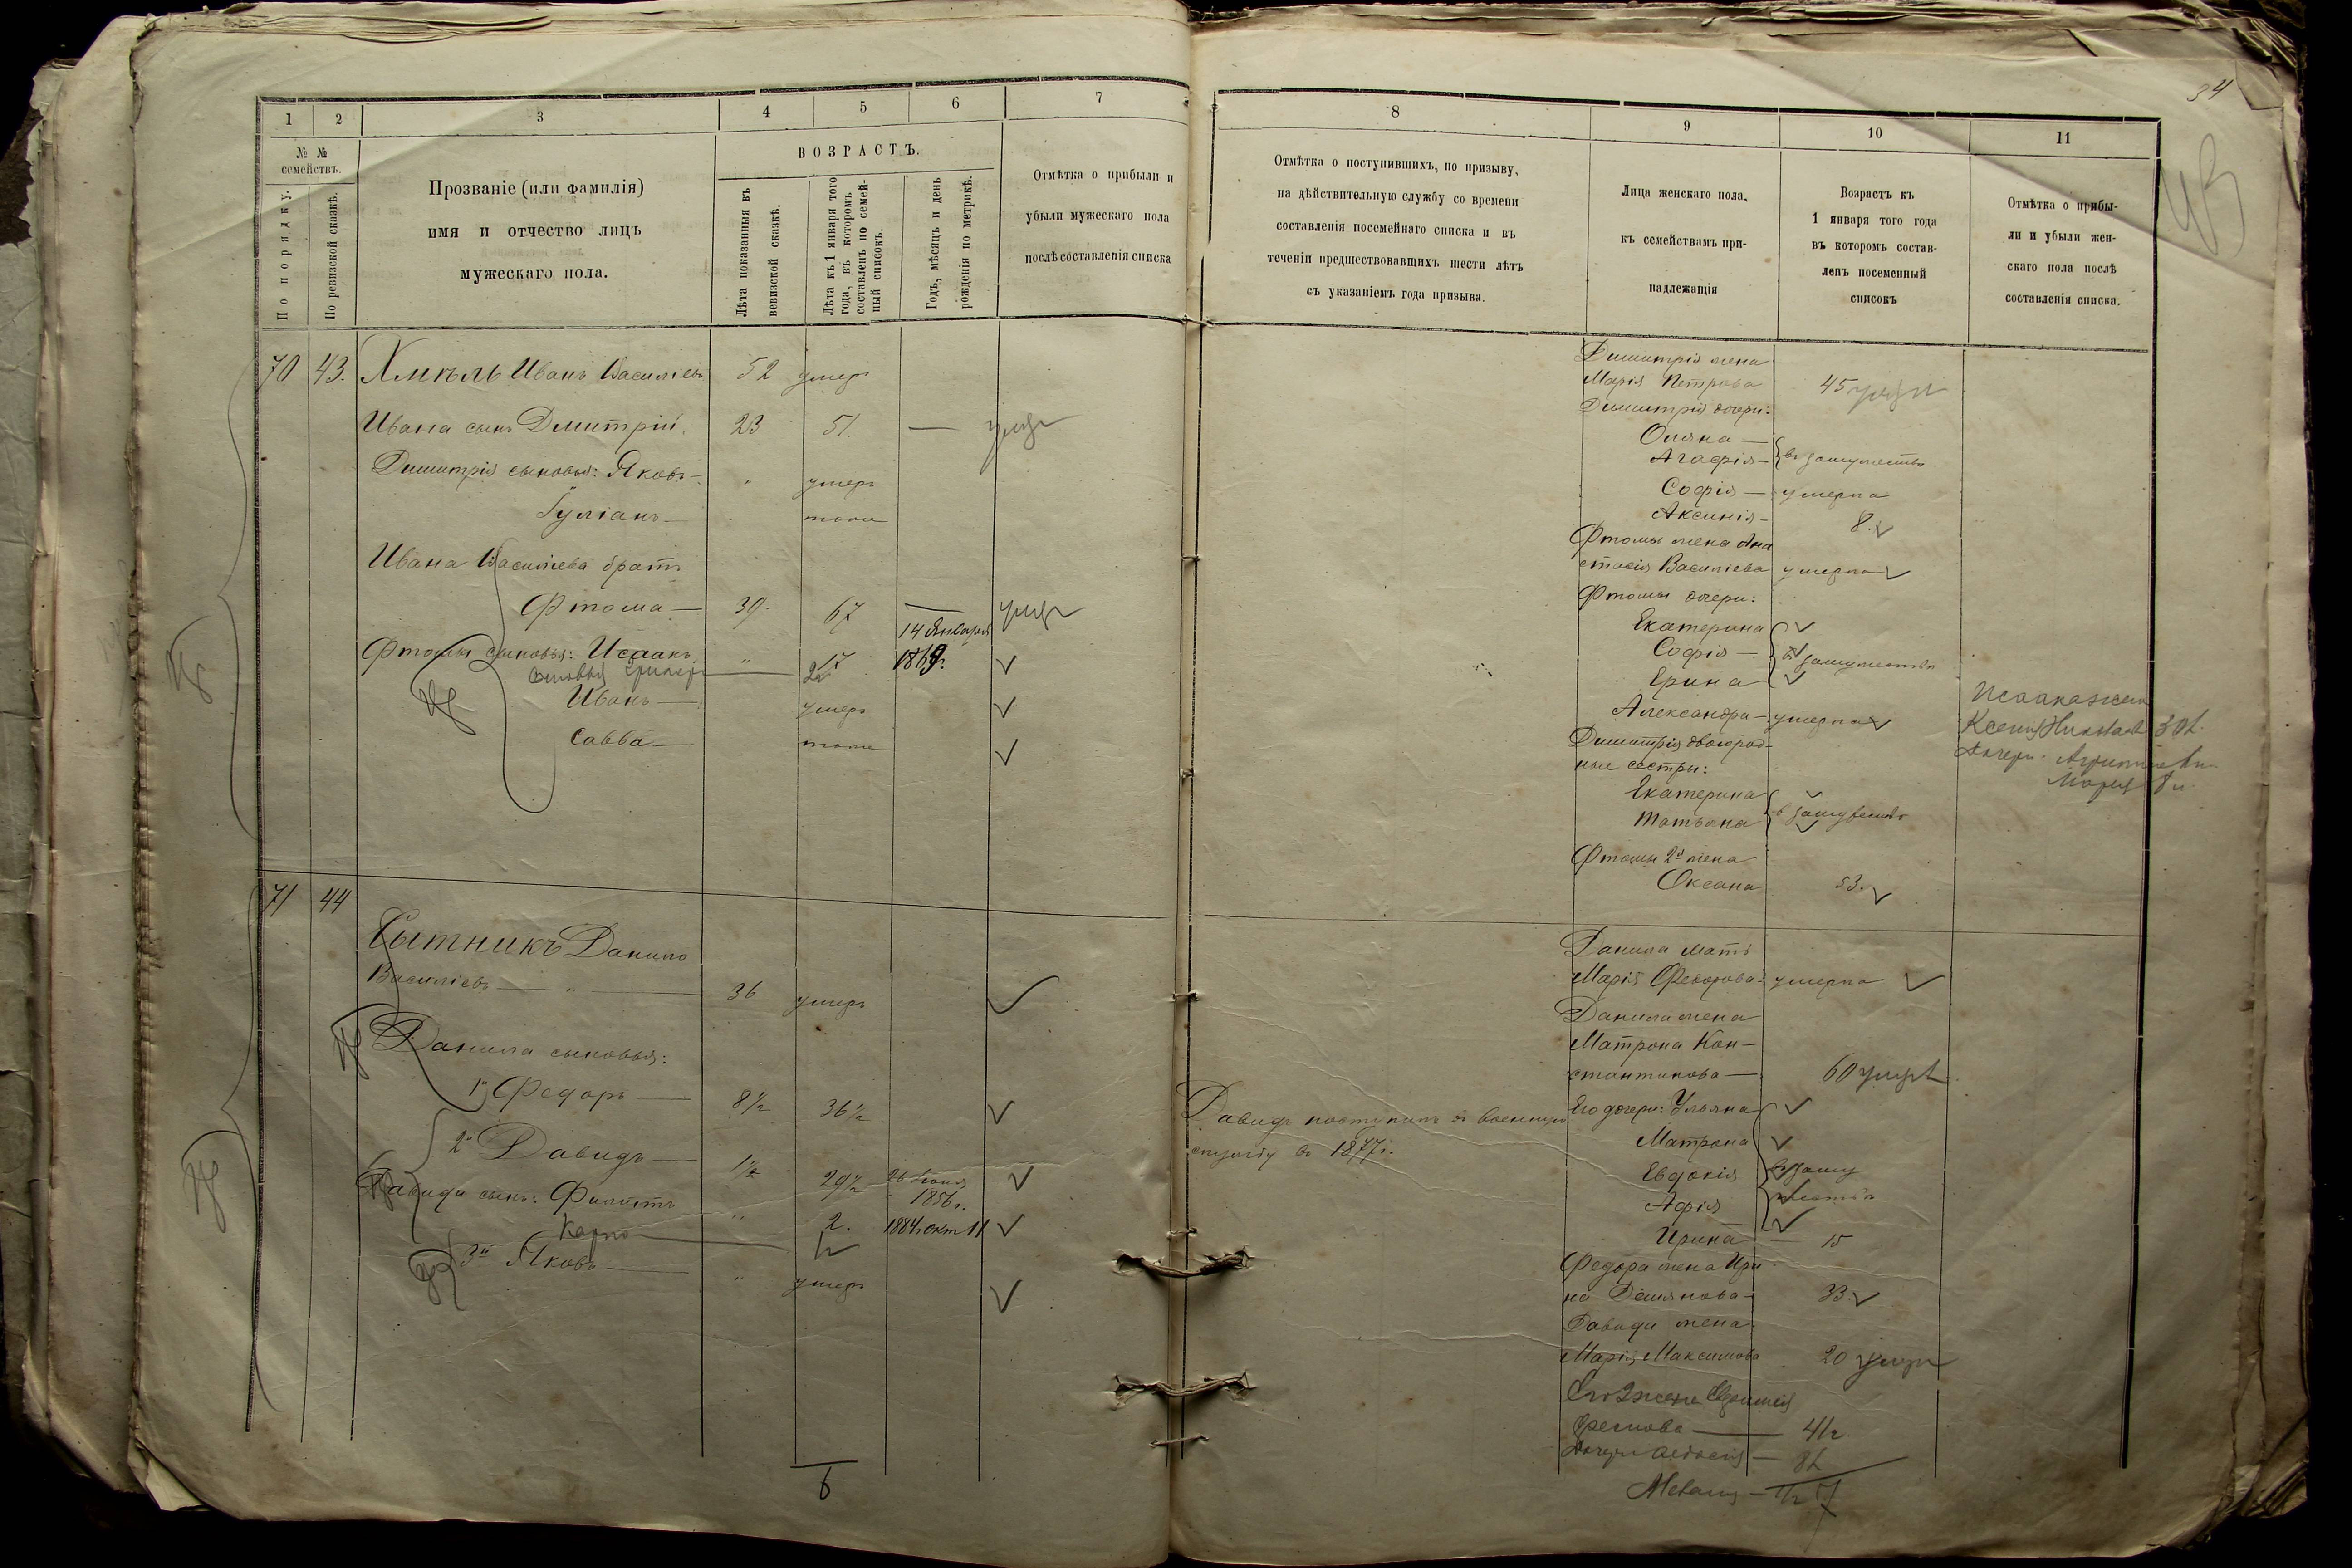 34
43
1 2 3 4 5 6 7
№ №
семействъ.
По порядку.
По ревизской сказкѣ.
Прозваніе (или фамилія)
имя и отчество лицъ
мужескаго пола.
ВОЗРАСТЪ.
Лѣта показанныя въ
ревизской сказкѣ.
Лѣта къ 1 января того
года, въ которомъ
составленъ по семей-
ный списокъ.
Годъ, мѣсяцъ и день
рожденія по метрикѣ.
Отмѣтка о прибыли и
убыли мужескаго пола
послѣ составленія списка
70 43. Хмѣль Иванъ Василіевъ 52 умеръ —
Ивана сынъ Дмитрій. 23 51. — умеръ
Димитрія сыновья: Яковъ — " умеръ
Іуліанъ — тоже
Ивана Василіева братъ
Фтома — 39. 67 — умеръ
14 Января
Фтомы сыновья: Исаакъ " 17 1869г.
22
Иванъ — умеръ
Савва — тоже
71 44
Сытникъ Данило
Василіевъ — " — 36 умеръ
Данила сыновья:
1й Федоръ — 8 1/2 36 1/2
2й Давидъ — 1 1/2 29 1/2 26 Іюня
1856 г.
Давида сынъ: Филиппъ " 2. 1884 окт 11
Карпо —
3й Яковъ — " умеръ
6
8 9 10 11
Отмѣтка о поступившихъ, по призыву,
на дѣйствительную службу со времени
составленія посемейнаго списка и въ
теченіи предшествовавщихъ шести лѣтъ
съ указаніемъ года призыва.
Лица женскаго пола,
къ семействамъ при-
надлежащія
Возрастъ къ
1 января того года
въ которомъ состав-
ленъ посеменный
списокъ
Отмѣтка о прибы-
ли и убыли жен-
скаго пола послѣ
составленія списка.
Димитрія жена
Марія Петрова 45 умерла
Димитрія дочери:
Оляна —
Агафія — въ замужествѣ
Софія — умерла
Аксинія — 8.
Фтомы жена Ана
стасія Василіева умерла
Фтомы дочери:
Екатерина
Софія — въ замужествѣ
Ерина
Александра — умерла
Исаака жена
Ксенія Николаева 30 л.
Димитрія двоюрод-
ные сестры:
Дочери
Марія 8 л.
Екатерина
Татьяна въ замужествѣ
Фтомы 2я жена
Оксана 53.
Данила мать
Марія Федорова умерла
Данила жена
Матрона Кон-
стантинова — 60 умерла
Давидъ поступилъ въ военную
службу въ 1877 г.
Его дочери: Ульяна
Матрона
Евдокія въ заму
Афія жествѣ
Ирина — 15
Федора жена Ири
на Демянова — 33.
Давида жена
Марія Максимова 20 умерла
Его 2 жена
— 41 л.
Дочери — 8 л.
7